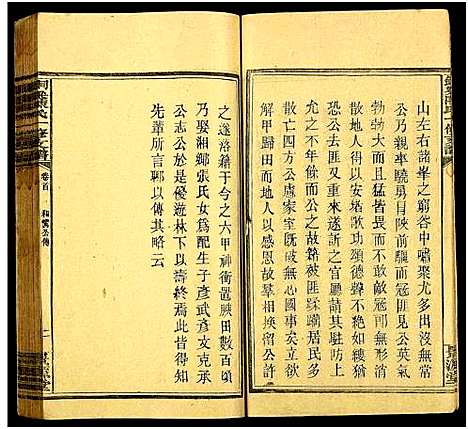 山左右諸峯之窮谷中嘯聚尤多出沒無常
公乃親率驍勇冐陜前竄元匪見公英氣
勃勃大而且猛皆畏而散敢後不敢蠢動
散地人得以安堵歌功頌德聲不絕如縷猶
恐公去匪又重來遂訴之官廳請其駐防上
允之不年餘而公之故籍被匪蹂躪居民多
散亡四方公慮家室既破無心國事矣立欲
解甲歸田而地人以感恩故羣相挽留公許
之遂落籍于今之六甲神衝置腴田數百頃
乃娶湘鄉張氏女爲配生子彥武彥文克承
公志公於是優遊林下以壽終焉此其大略
先輩所言耶以傳其略云
卷首
二